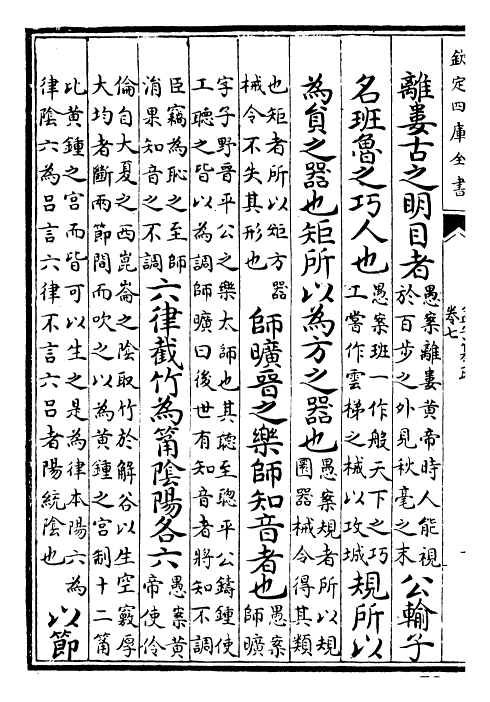 欽定四庫全書
卷七
離婁古之明目者愚案離婁黄帝時人能視
於百步之外見秋毫之末公輸子
名班魯之巧人也愚案班一作般天下之巧
工嘗作雲梯之械以攻城規所以
為貟之器也矩所以為方之器也愚案規者所以規
圜器械令得其類
也矩者所以矩方器
械令不失其形也師曠晉之樂師知音者也愚案
師曠
字子野晉平公之樂太師也其聽至聰平公鑄鍾使
工聽之皆以為調師曠曰後世有知音者將知不調
臣竊為恥之至師
涓果知音之不調六律截竹為筩陰陽各六愚案黄
帝使伶
倫自大夏之西崑崙之陰取竹於解谷以生空竅厚
大均者斷兩節間而吹之以為黄鍾之宫制十二筩
比黄鍾之宫而皆可以生之是為律本陽六為
律陰六為吕言六律不言六吕者陽統陰也以節